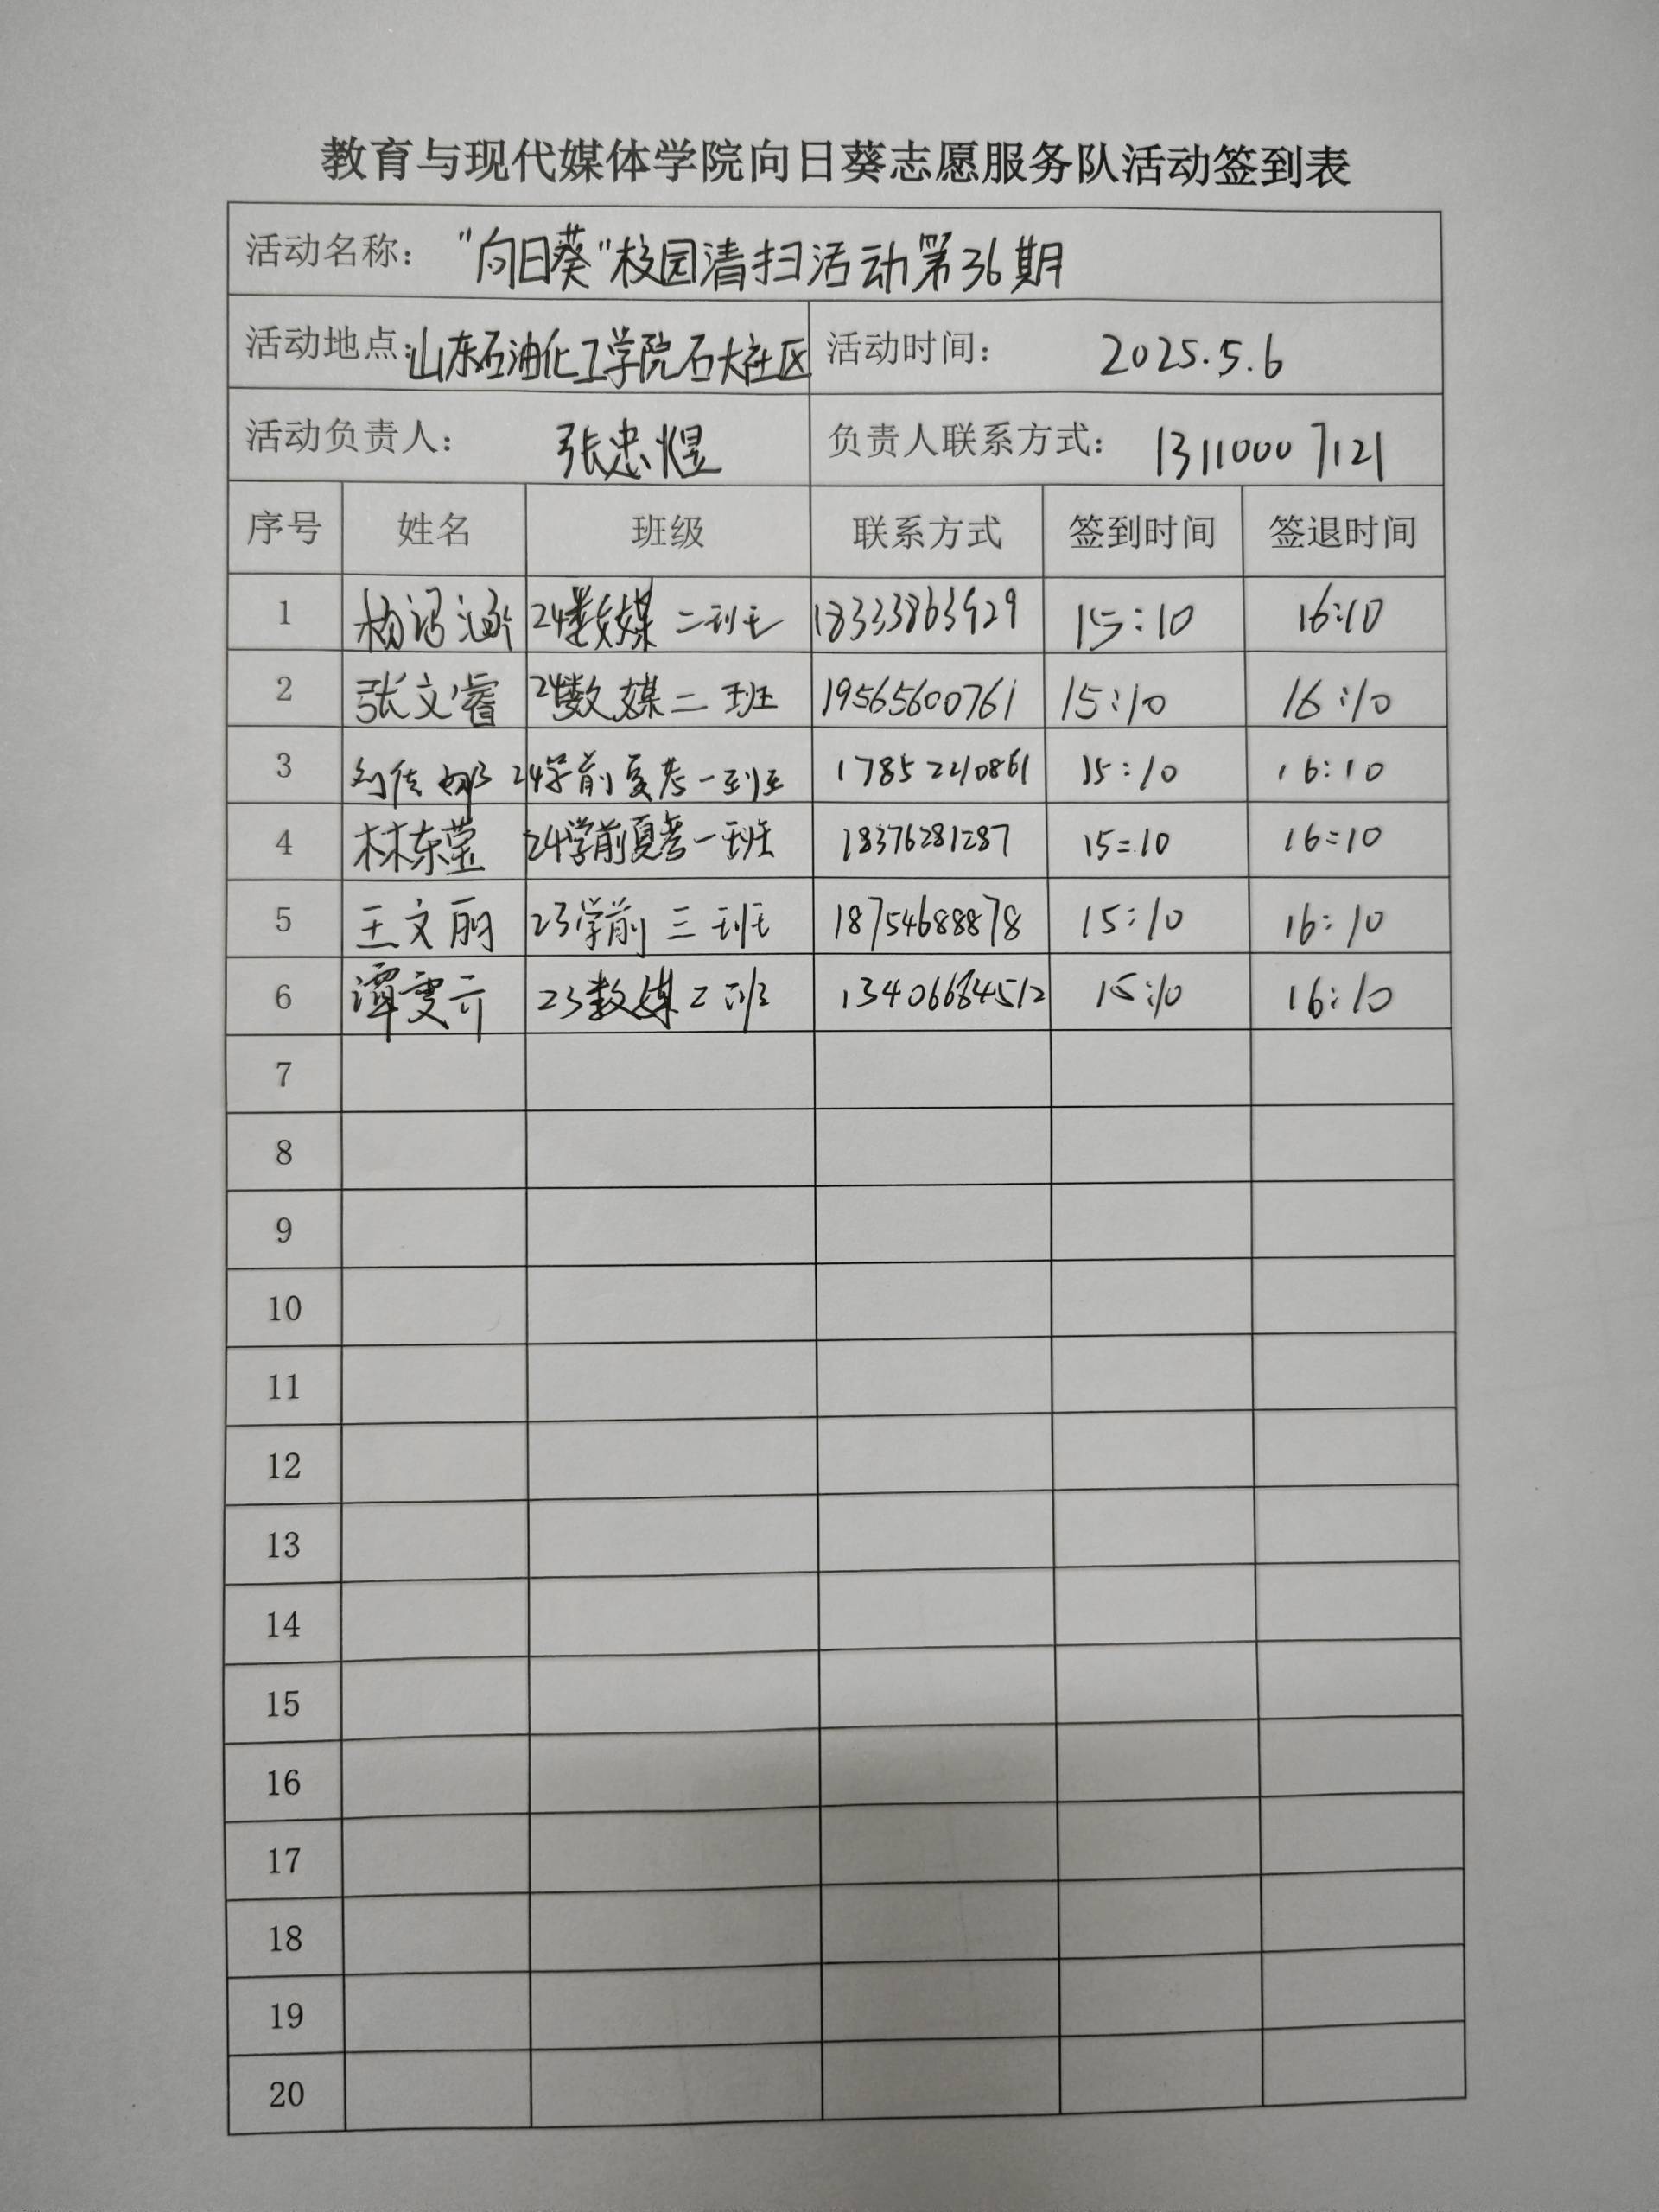 教育与现代媒体学院向日葵志愿服务队活动签到表
活动名称： "向日葵"校园清扫活动第36期
活动地点：山东石油化工学院石大社区 活动时间： 2025.5.6
活动负责人： 张忠煜 负责人联系方式： 13110007121
序号 姓名 班级 联系方式 签到时间 签退时间
1 杨冯涵 24数媒二班 18333863929 15:10 16:10
2 张文睿 24数媒二班 19565600761 15:10 16:10
3 刘佳娜 24学前夏考一班 17852210861 15:10 16:10
4 林东莹 24学前夏考一班 18376281287 15:10 16:10
5 王文丽 23学前三班 18754688878 15:10 16:10
6 谭雯亓 23数媒二班 13406684512 15:10 16:10
7
8
9
10
11
12
13
14
15
16
17
18
19
20